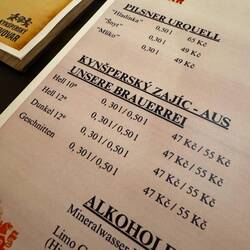 KYNŠPERSKÝ
PIVOVAR
PILSNER URQUELL
"Hladinka" 0,50 l 65 Kč
"Šnyt" 0,30 l 49 Kč
"Mlíko" 0,50 l 49 Kč
KYNŠPERSKÝ ZAJÍC - AUS
UNSERE BRAUERREI
Hell 10° 0,30l/0,50l 47 Kč / 55 Kč
Hell 12° 0,30l/0,50l 47 Kč / 55 Kč
Dunkel 12° 0,30l/0,50l 47 Kč / 55 Kč
Geschnitten 0,30l/0,50l 47 Kč / 55 Kč
ALKOHOL
Mineralwasser
Limo